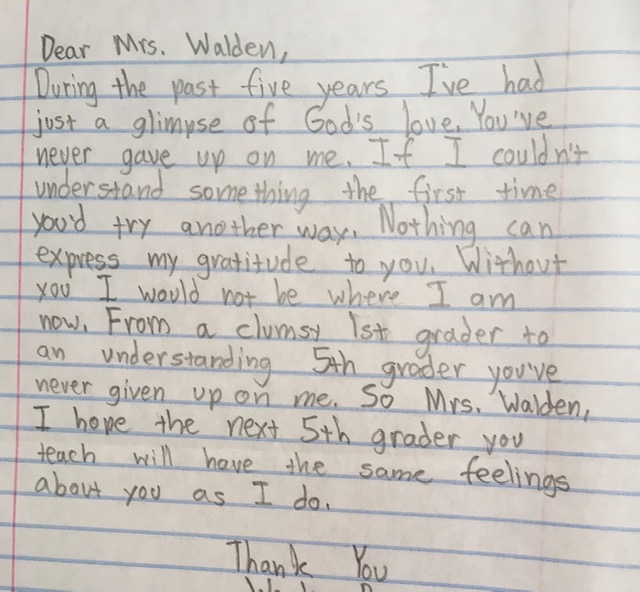 Dear Mrs. Walden,
During the past five years I've had
just a glimpse of God's love. You've
never gave up on me. If I couldn't
understand something the first time
you'd try another way. Nothing can
express my gratitude to you. Without
you I would not be where I am
now. From a clumsy 1st grader to
an understanding 5th grader you've
never given up on me. So Mrs. Walden,
I hope the next 5th grader you
teach will have the same feelings
about you as I do.
Thank You